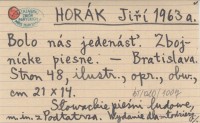 HORÁK Jiří 1963 a.
Bolo nás jedenásť. Zboj-
nícke piesne. — Bratislava.
Stron 48, ilustr., opr., obw.,
cm 21 × 14.
Słowackie pieśni ludowe,
m. in. z Podtatrza. Wydanie dla młodzieży